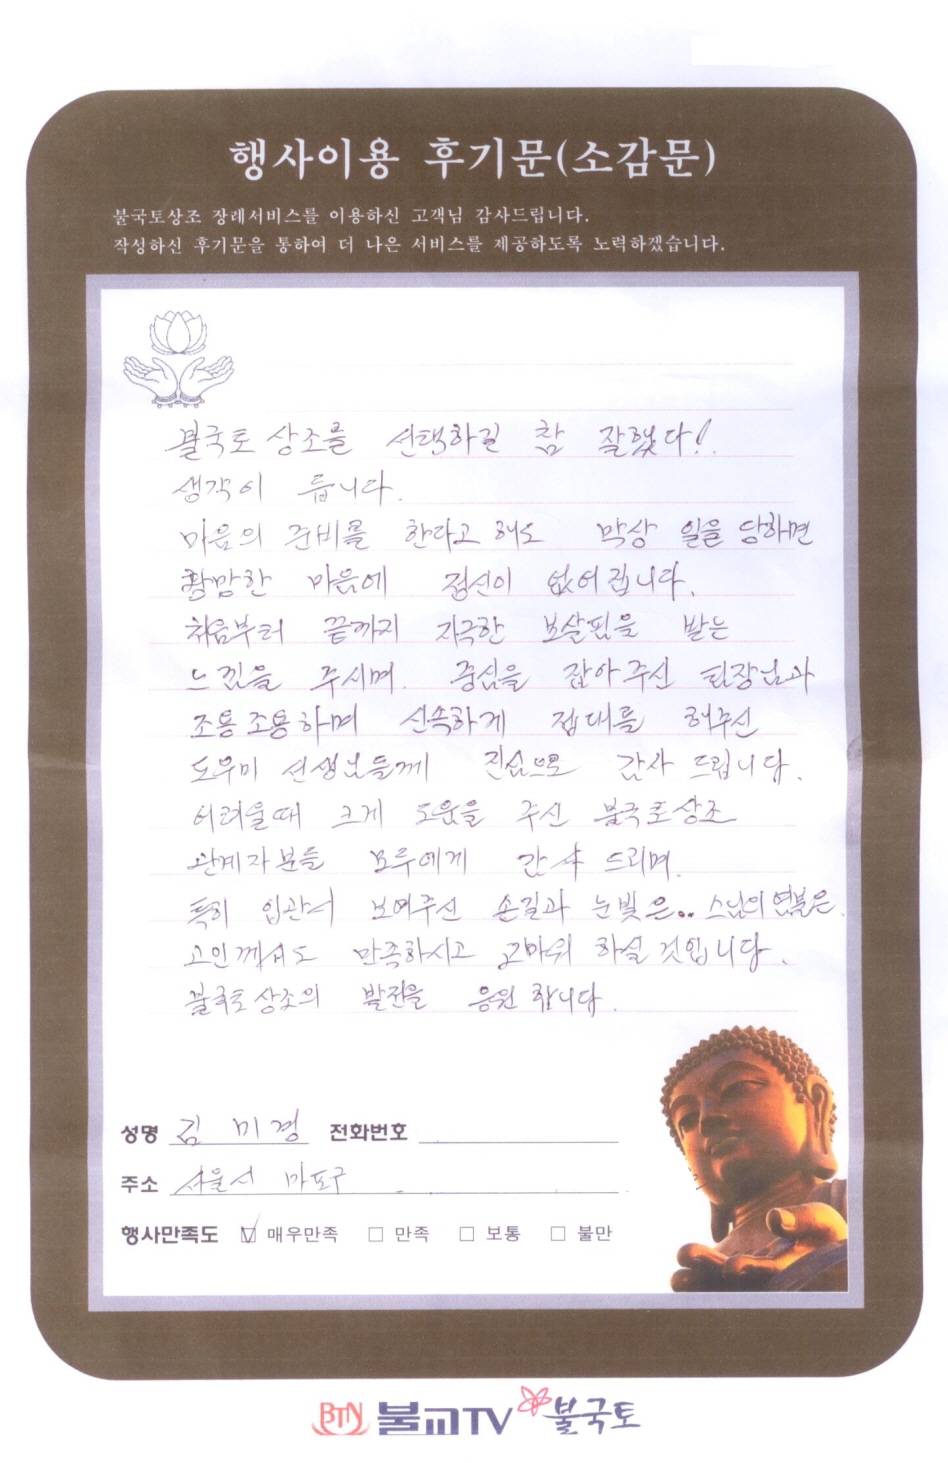 행사이용 후기문(소감문)
불국토상조 장례서비스를 이용하신 고객님 감사드립니다.
작성하신 후기문을 통하여 더 나은 서비스를 제공하도록 노력하겠습니다.
불국토 상조를 선택하길 참 잘했다!
생각이 듭니다.
마음의 준비를 한다고 해도 막상 일을 당하면
황망한 마음에 정신이 없어집니다.
처음부터 끝까지 지극한 보살핌을 받는
느낌을 주시며. 중심을 잡아주신 팀장님과
조용조용하며 신속하게 접대를 해주신
도우미 선생님들께 진심으로 감사 드립니다.
어려울때 크게 도움을 주신 불국토상조
관계자분들 모두에게 감사 드리며.
특히 입관서 보여주신 손길과 눈빛은.. 스님의 염불은.
고인께서도 만족하시고 고마워 하실 것입니다.
불국토상조의 발전을 응원 합니다.
성명 김 미경 전화번호
주소 서울시 마포구
행사만족도 매우만족 만족 보통 불만
BTN 불교TV 불국토